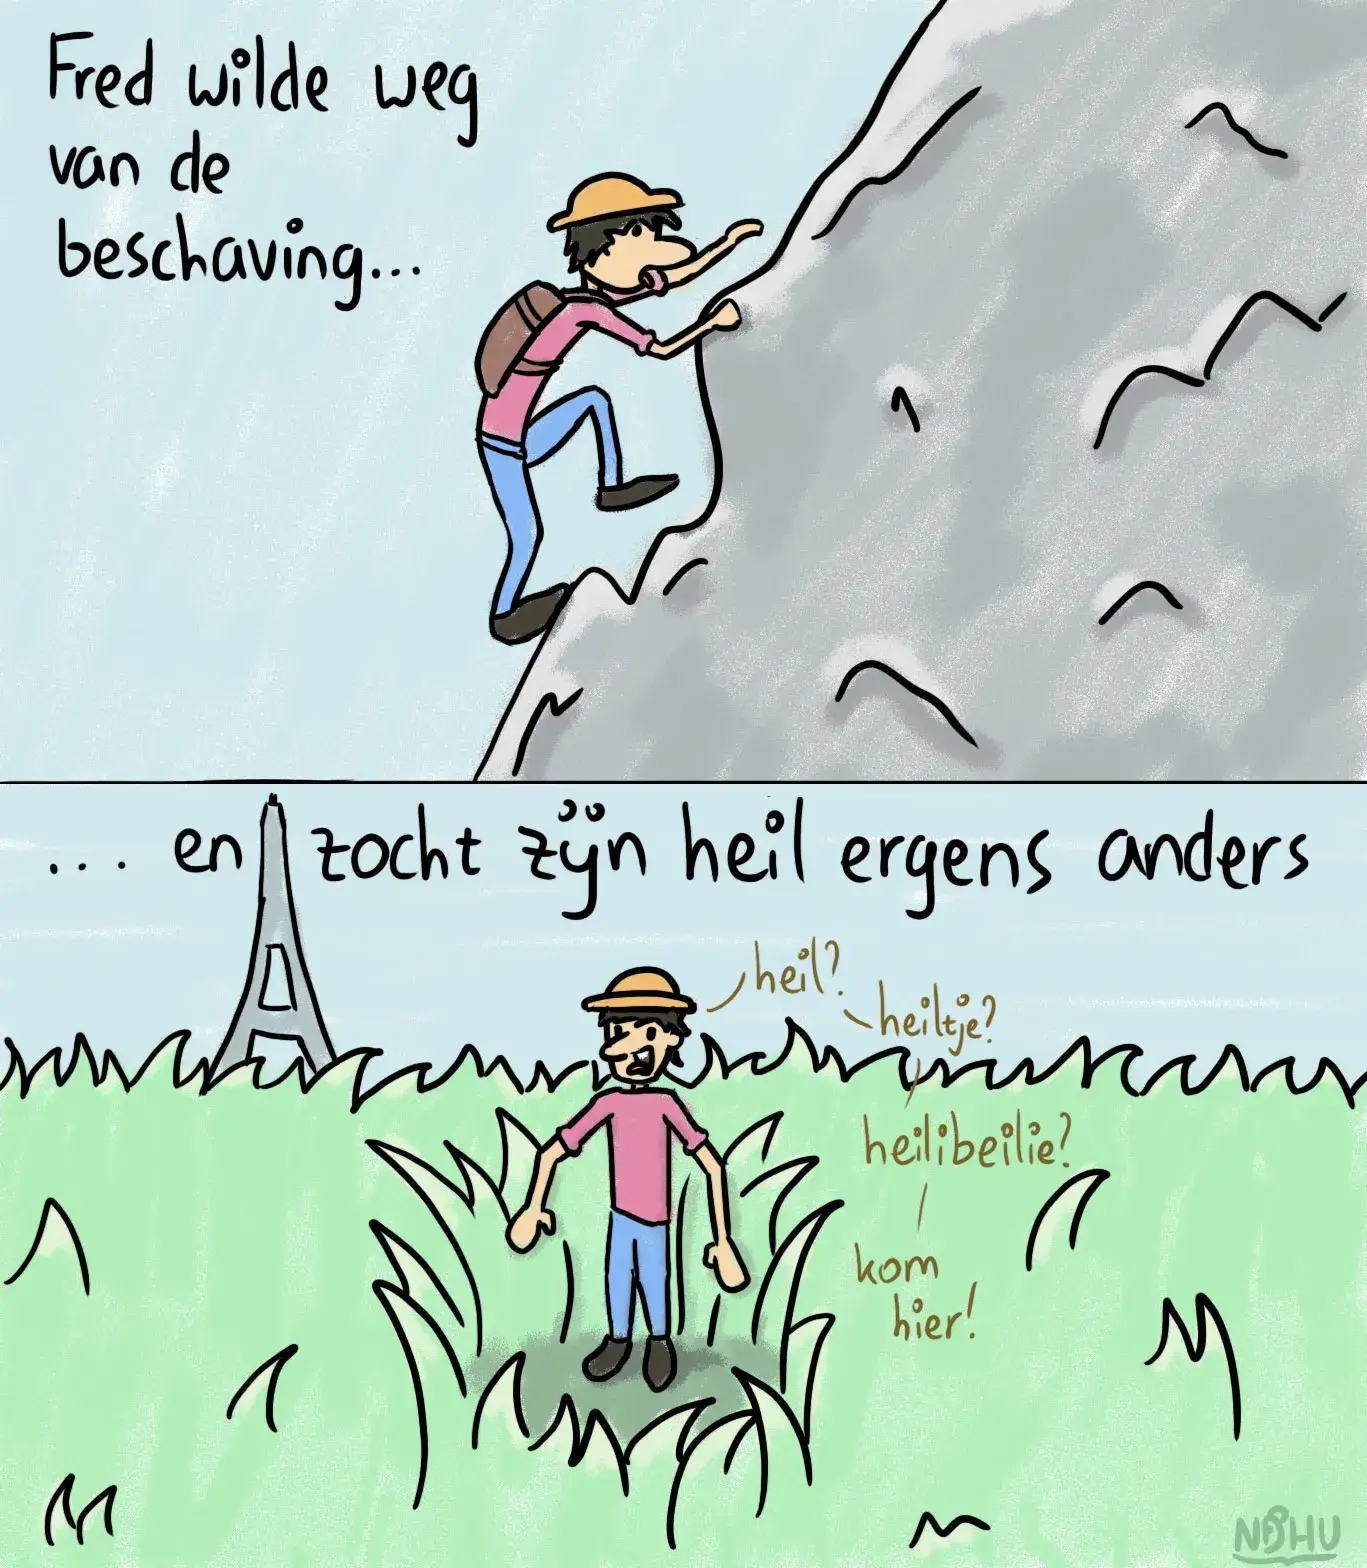 Fred wilde weg
van de
beschaving...
... en zocht zijn heil ergens anders
heil?
heiltje?
heilibeilie?
kom
hier!
NOHU